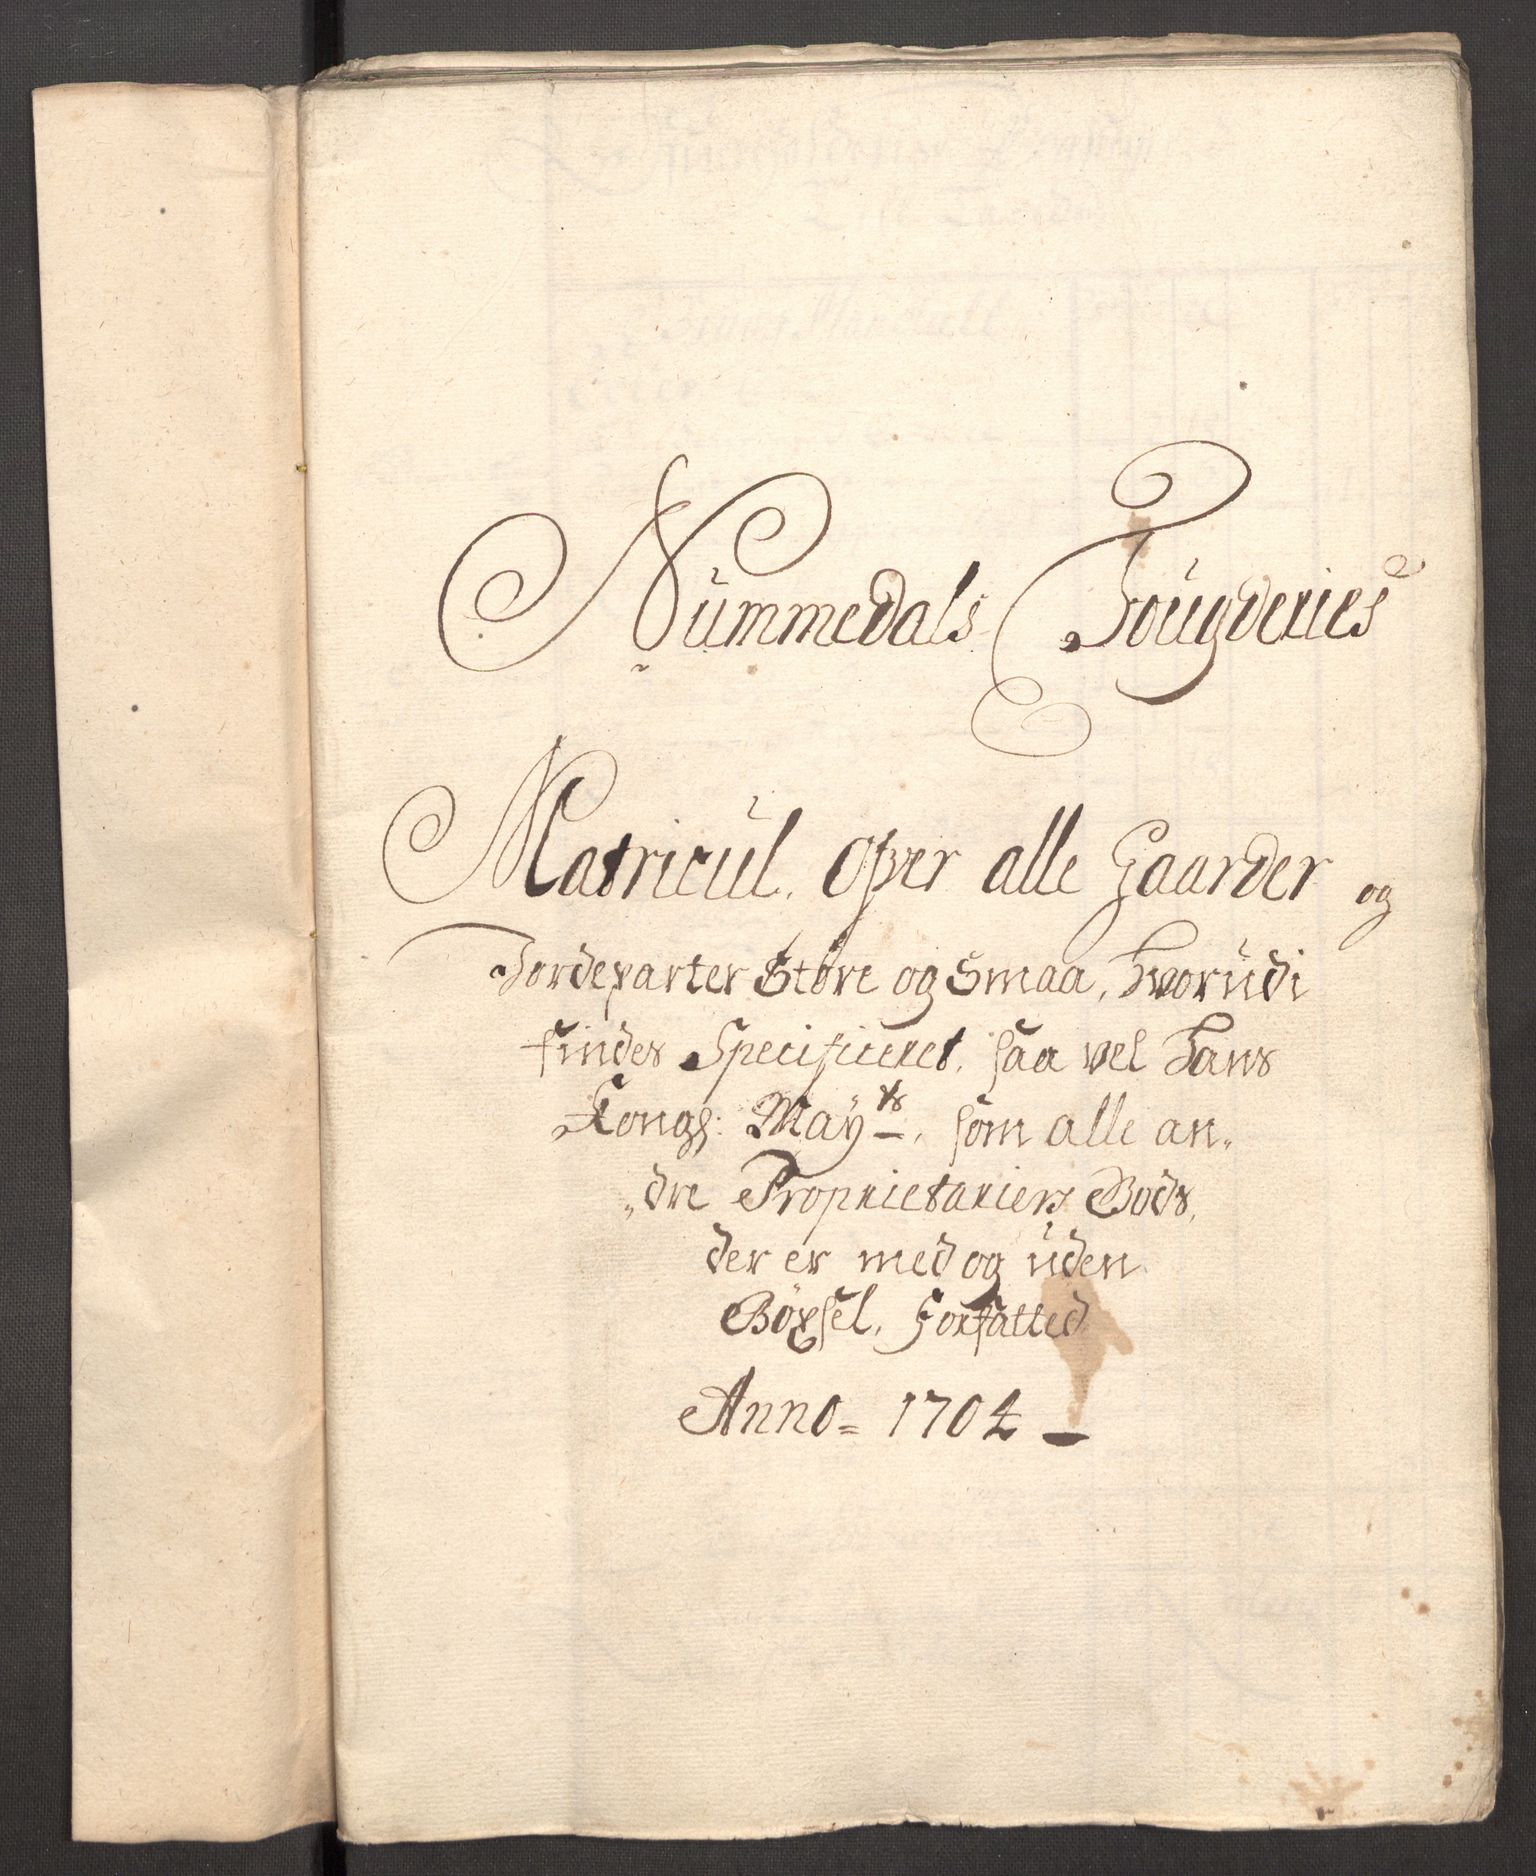 Nummedals Fougderies
Matricul. Over alle Gaarder og
Jordeparter Store og Smaa, Hvorudi
findes Specificeret, saa vel Hans
Kongs: Mayts, som alle an„
„dre Proprietariers Bods,
der er med og uden
Böxsel, Forfatted
Anno = 1704 –